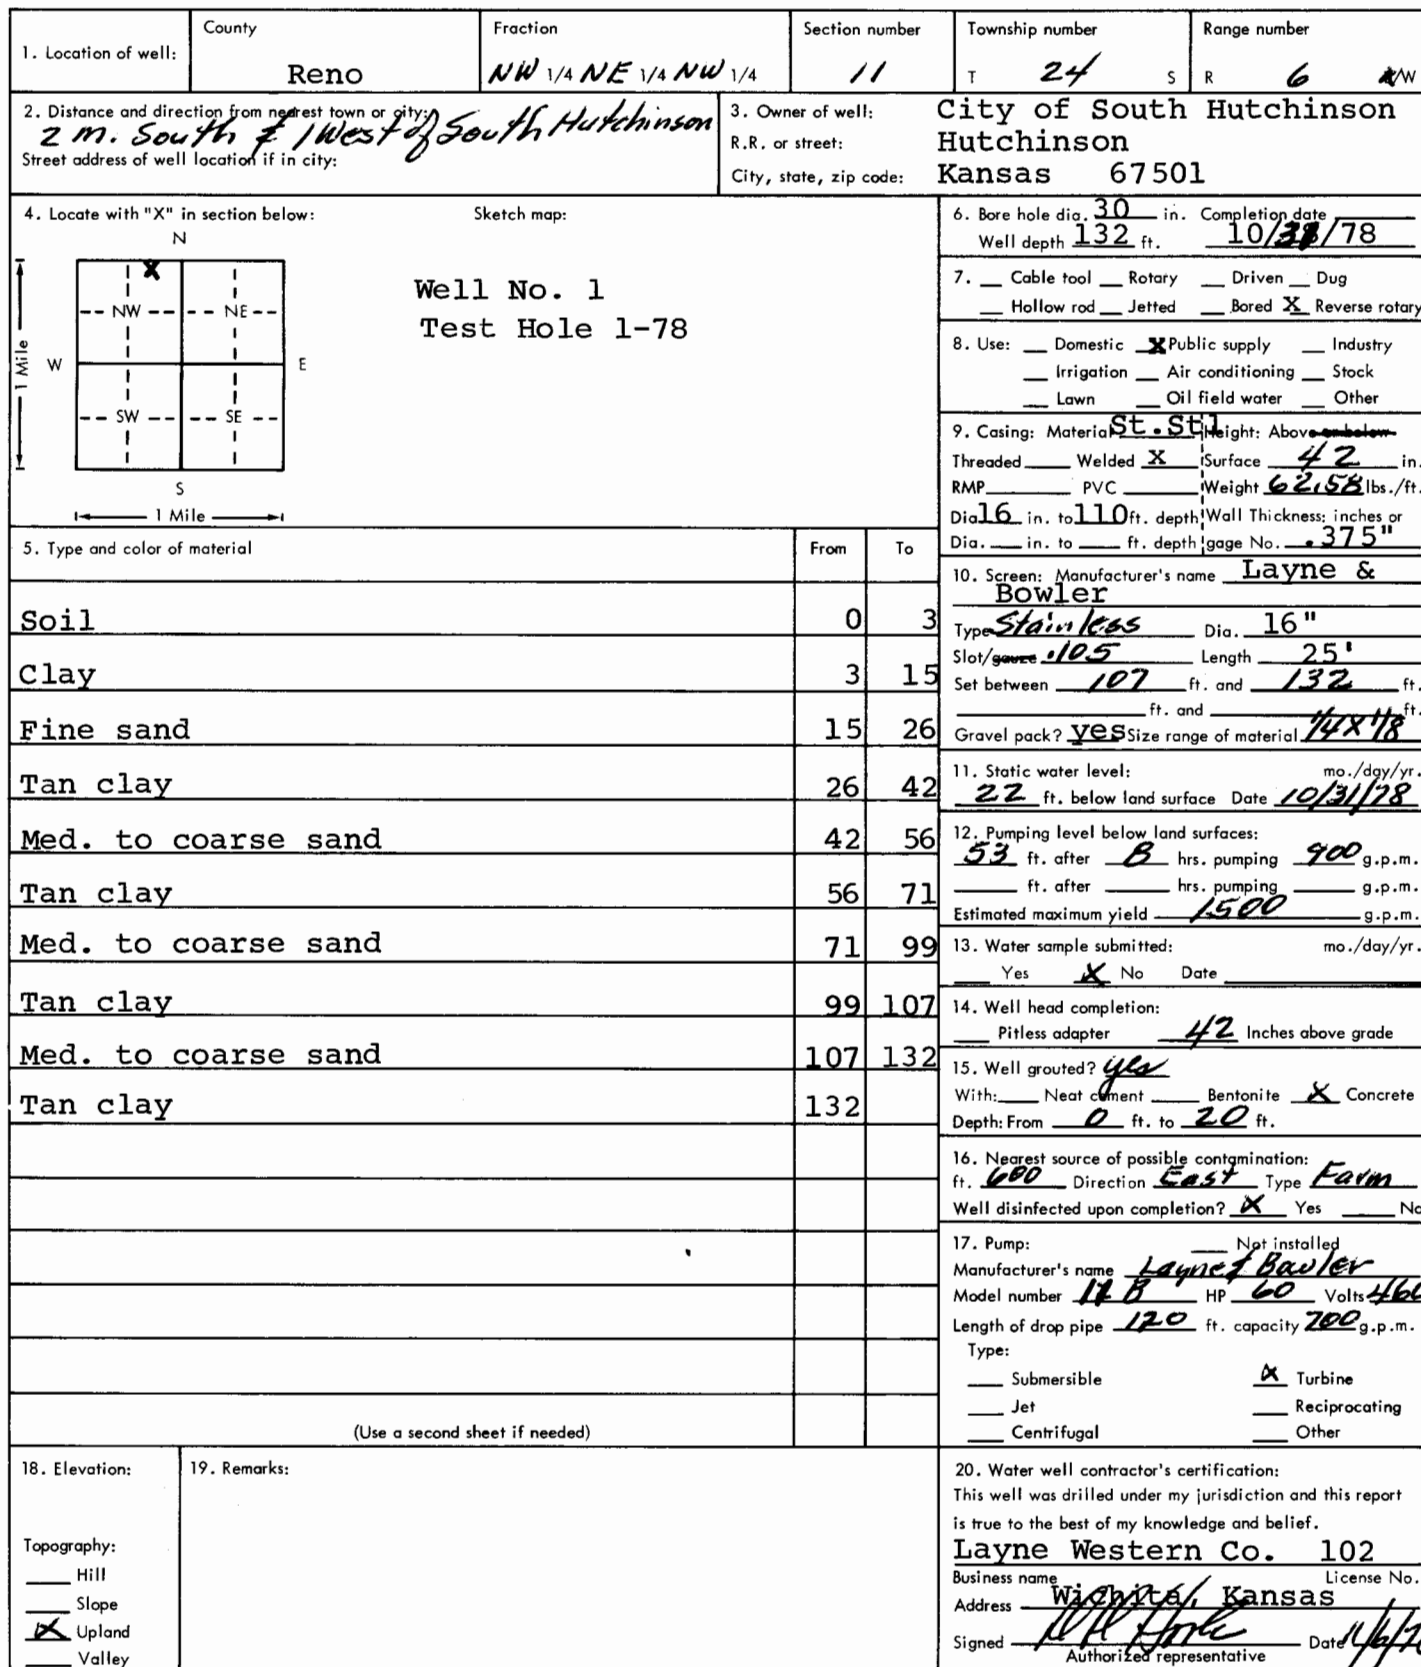 1. Location of well:
County
Reno
Fraction
NW 1/4 NE 1/4 NW 1/4
Section number
11
Township number
T 24 S
Range number
R 6 E/W
2. Distance and direction from nearest town or city:
2 m. South & 1 West of South Hutchinson
Street address of well location if in city:
3. Owner of well: City of South Hutchinson
R.R. or street: Hutchinson
City, state, zip code: Kansas 67501
4. Locate with "X" in section below:
Sketch map:
N
X
NW NE
W E
SW SE
S
1 Mile
1 Mile
Well No. 1
Test Hole 1-78
5. Type and color of material From To
Soil 0 3
Clay 3 15
Fine sand 15 26
Tan clay 26 42
Med. to coarse sand 42 56
Tan clay 56 71
Med. to coarse sand 71 99
Tan clay 99 107
Med. to coarse sand 107 132
Tan clay 132
(Use a second sheet if needed)
6. Bore hole dia. 30 in. Completion date
Well depth 132 ft. 10/31/78
7. Cable tool Rotary Driven Dug
Hollow rod Jetted Bored X Reverse rotary
8. Use: Domestic X Public supply Industry
Irrigation Air conditioning Stock
Lawn Oil field water Other
9. Casing: Material St.Stl Height: Above or below
Threaded Welded X Surface 42 in.
RMP PVC Weight 62.58 lbs./ft.
Dia 16 in. to 110 ft. depth Wall Thickness: inches or
Dia. in. to ft. depth gage No. .375"
10. Screen: Manufacturer's name Layne &
Bowler
Type Stainless Dia. 16"
Slot/gauze .105 Length 25'
Set between 107 ft. and 132 ft.
ft. and ft.
Gravel pack? yes Size range of material 1/4 X 1/8
11. Static water level: mo./day/yr.
22 ft. below land surface Date 10/31/78
12. Pumping level below land surfaces:
53 ft. after 8 hrs. pumping 900 g.p.m.
ft. after hrs. pumping g.p.m.
Estimated maximum yield 1500 g.p.m.
13. Water sample submitted: mo./day/yr.
Yes X No Date
14. Well head completion:
Pitless adapter 42 Inches above grade
15. Well grouted? yes
With: Neat cement Bentonite X Concrete
Depth: From 0 ft. to 20 ft.
16. Nearest source of possible contamination:
ft. 600 Direction East Type Farm
Well disinfected upon completion? X Yes No
17. Pump: Not installed
Manufacturer's name Layne & Bowler
Model number B HP 60 Volts 460
Length of drop pipe 120 ft. capacity 700 g.p.m.
Type:
Submersible X Turbine
Jet Reciprocating
Centrifugal Other
18. Elevation:
Topography:
Hill
Slope
X Upland
Valley
19. Remarks:
20. Water well contractor's certification:
This well was drilled under my jurisdiction and this report
is true to the best of my knowledge and belief.
Layne Western Co. 102
Business name License No.
Address Wichita, Kansas
Signed Date 11/6/78
Authorized representative